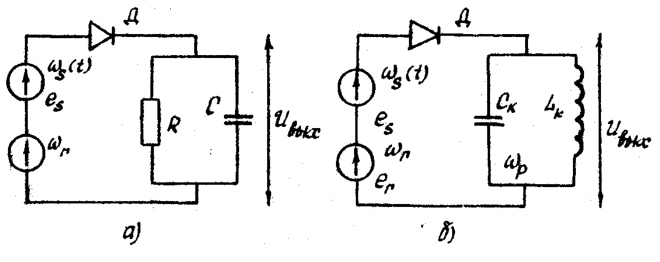 Д
ω_s(t)
e_s
ω_r
R
C
U_вых
а)
Д
ω_s(t)
e_s
ω_r
e_r
C_к
L_к
ω_p
U_вых
б)